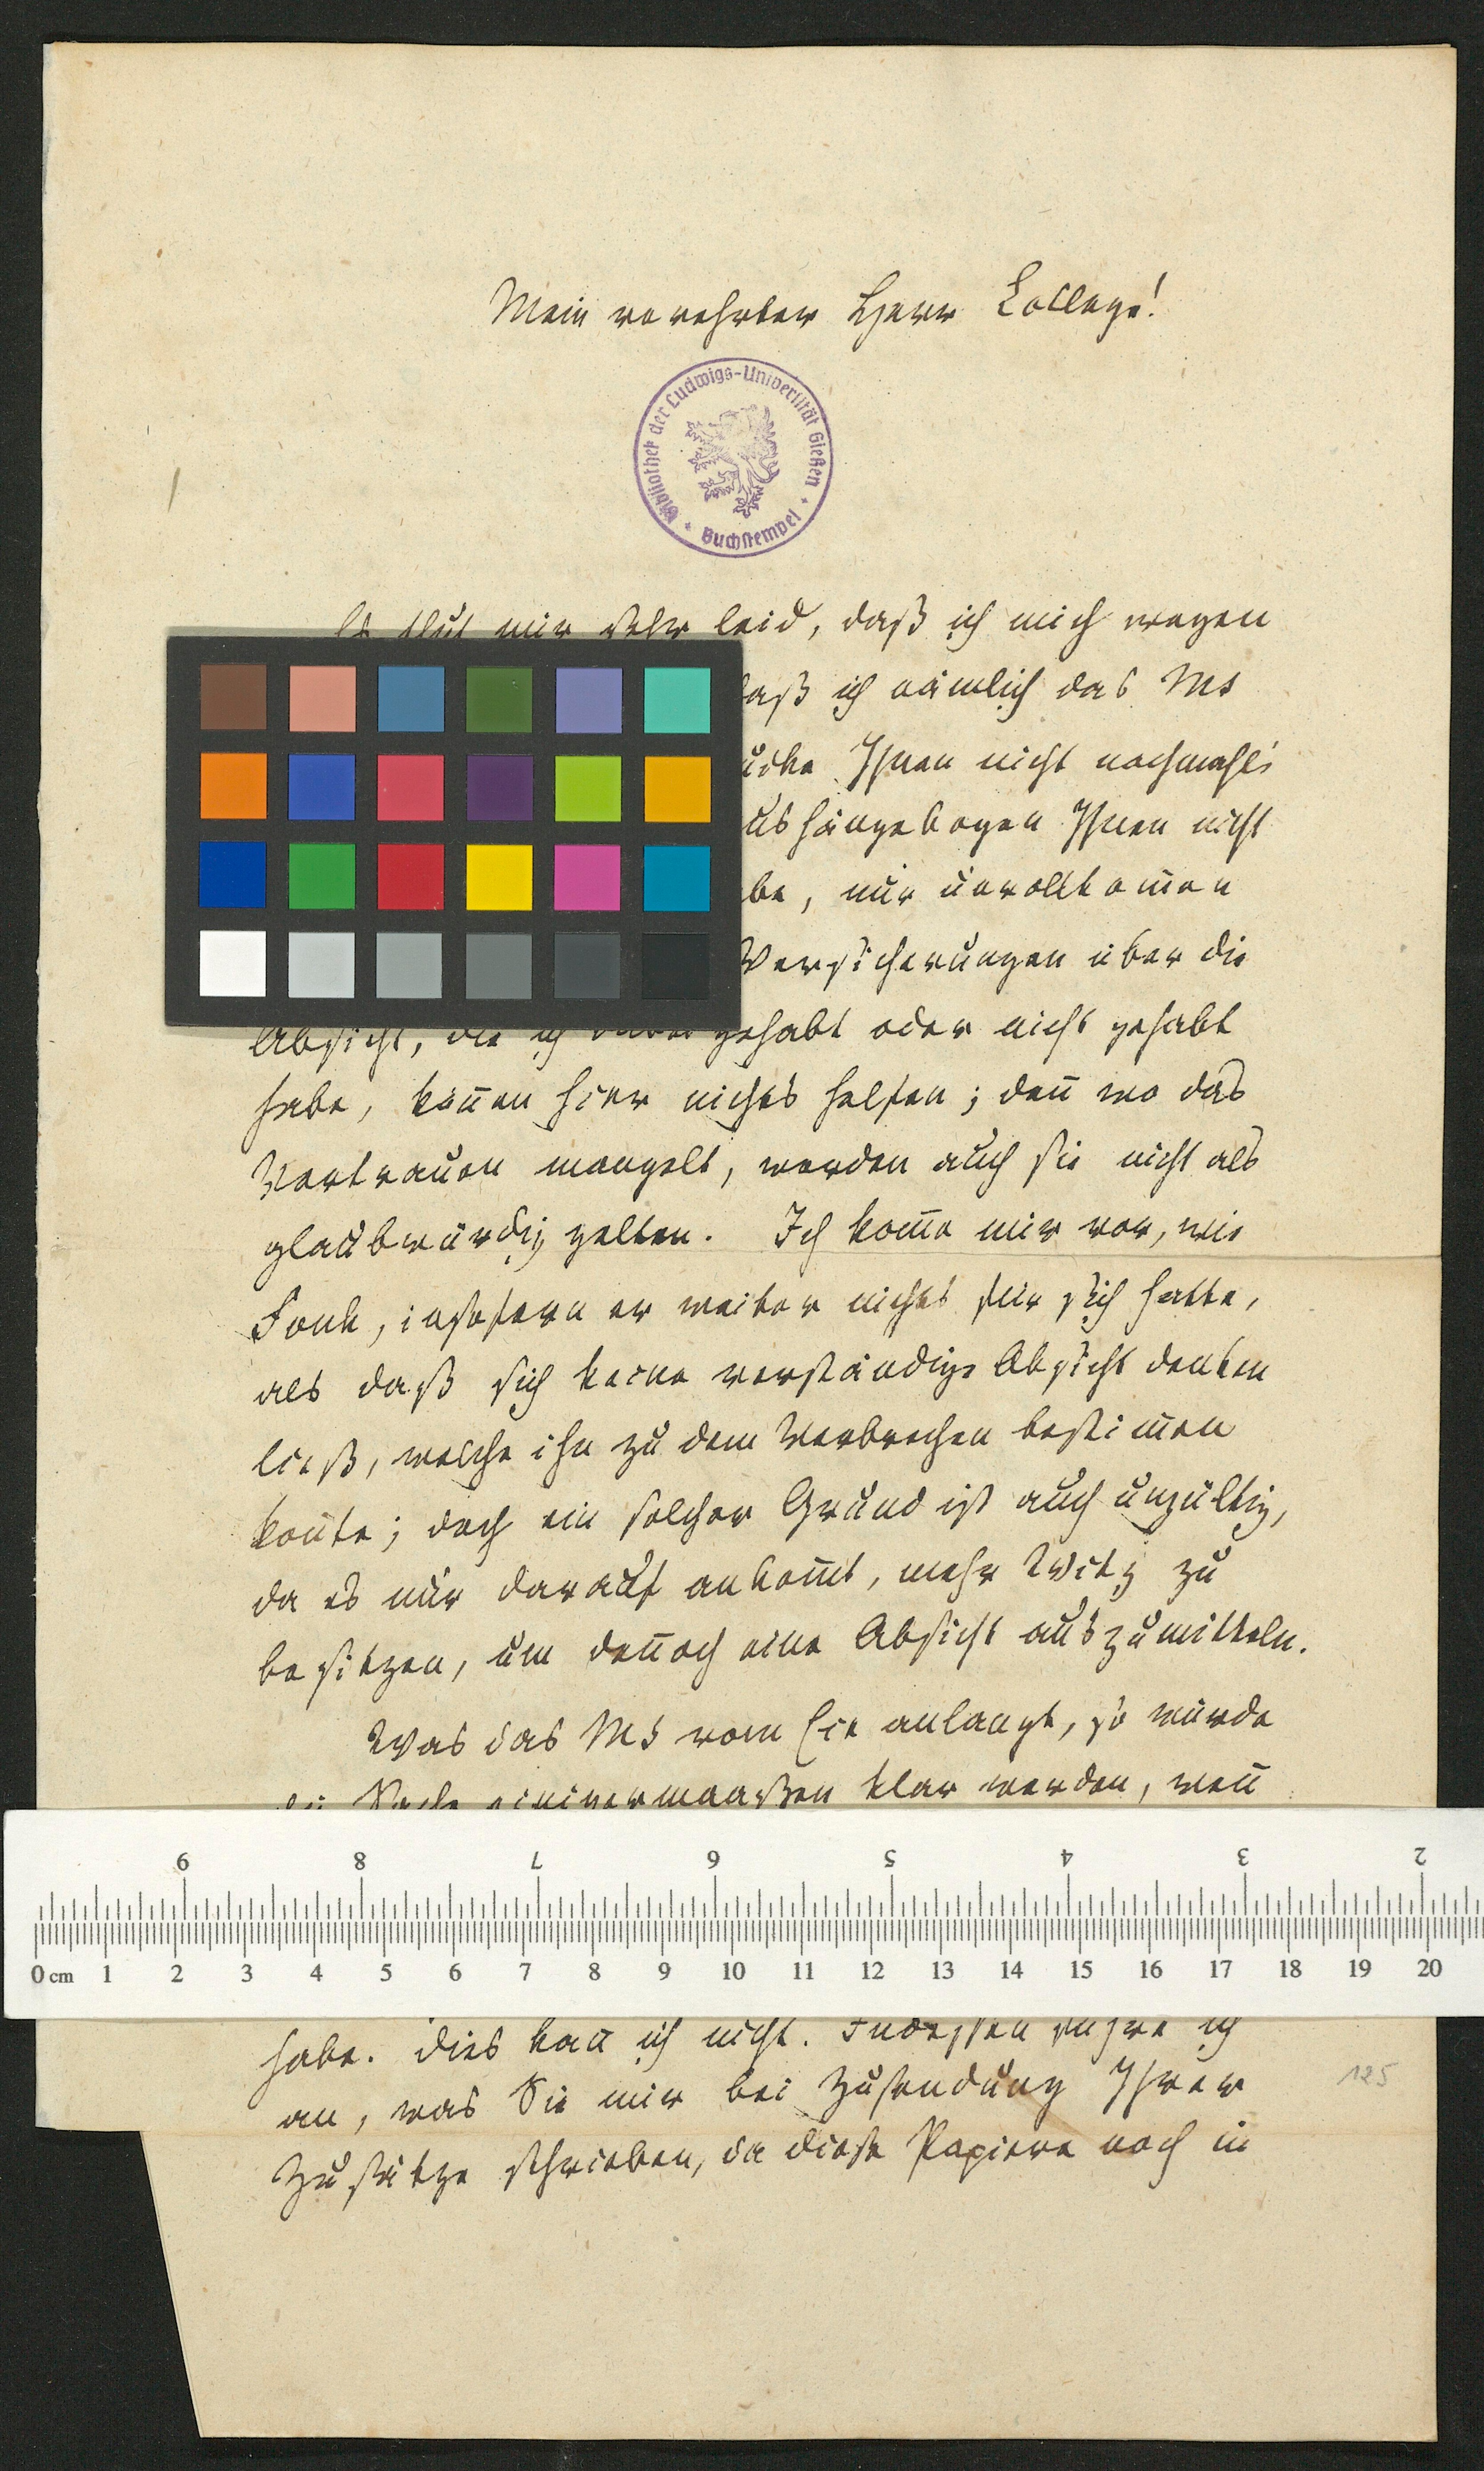 Mein verehrter Herr College!
Bibliothek der Ludwigs-Universität Gießen
Buchstempel
Es thut mir sehr leid, daß ich mich wegen
daß ich nämlich das Ms
Ihnen nicht nochmahls
aushängebogen Ihnen nicht
habe, nur unvollkom̅en
Versicherungen über die
Absicht, die ich dabei gehabt oder nicht gehabt
habe, kön̅en hier nichts helfen; den̅ wo das
Vertrauen mangelt, werden auch sie nicht als
glaubwürdig gelten. Ich kom̅e mir vor, wie
Fonk, insofern er weiter nichts für sich hatte,
als daß sich keine verständige Absicht denken
ließ, welche ihn zu dem Verbrechen bestim̅en
kon̅te; doch ein solcher Grund ist auch ungültig,
da es nur darauf ankom̅t, mehr Witz zu
besitzen, um den̅och eine Absicht auszumitteln.
Was das Ms vom Cic anlangt, so würde
die Sache einigermaaßen klar werden, wen̅
9 8 7 6 5 4 3 2
0 cm 1 2 3 4 5 6 7 8 9 10 11 12 13 14 15 16 17 18 19 20
habe. Dies kan̅ ich nicht. Indessen führe ich
an, was Sie mir bei Zusendung Ihrer
125
Zusätze schrieben, da diese Papiere noch in